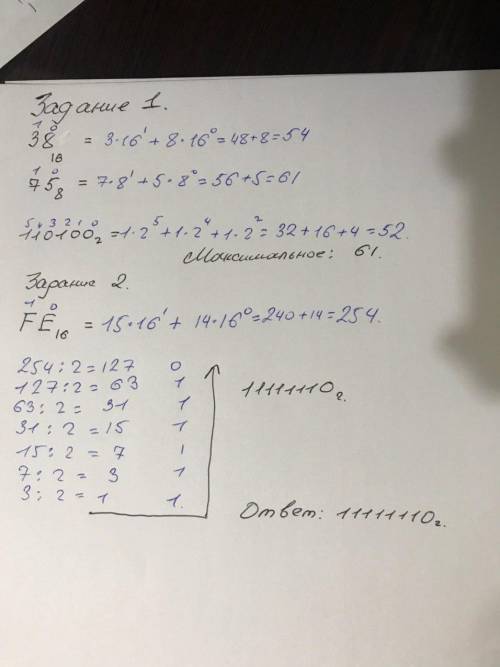 Задание 1.
1 0
38₁₆ = 3·16¹ + 8·16⁰ = 48+8 = 54
1 0
75₈ = 7·8¹ + 5·8⁰ = 56 + 5 = 61
5 4 3 2 1 0
110100₂ = 1·2⁵ + 1·2⁴ + 1·2² = 32 + 16 + 4 = 52.
Максимальное: 61.
Задание 2.
1 0
FE₁₆ = 15·16¹ + 14·16⁰ = 240 + 14 = 254.
254 : 2 = 127 0
127 : 2 = 63 1
63 : 2 = 31 1
31 : 2 = 15 1
15 : 2 = 7 1
7 : 2 = 3 1
3 : 2 = 1 1.
11111110₂.
Ответ: 11111110₂.